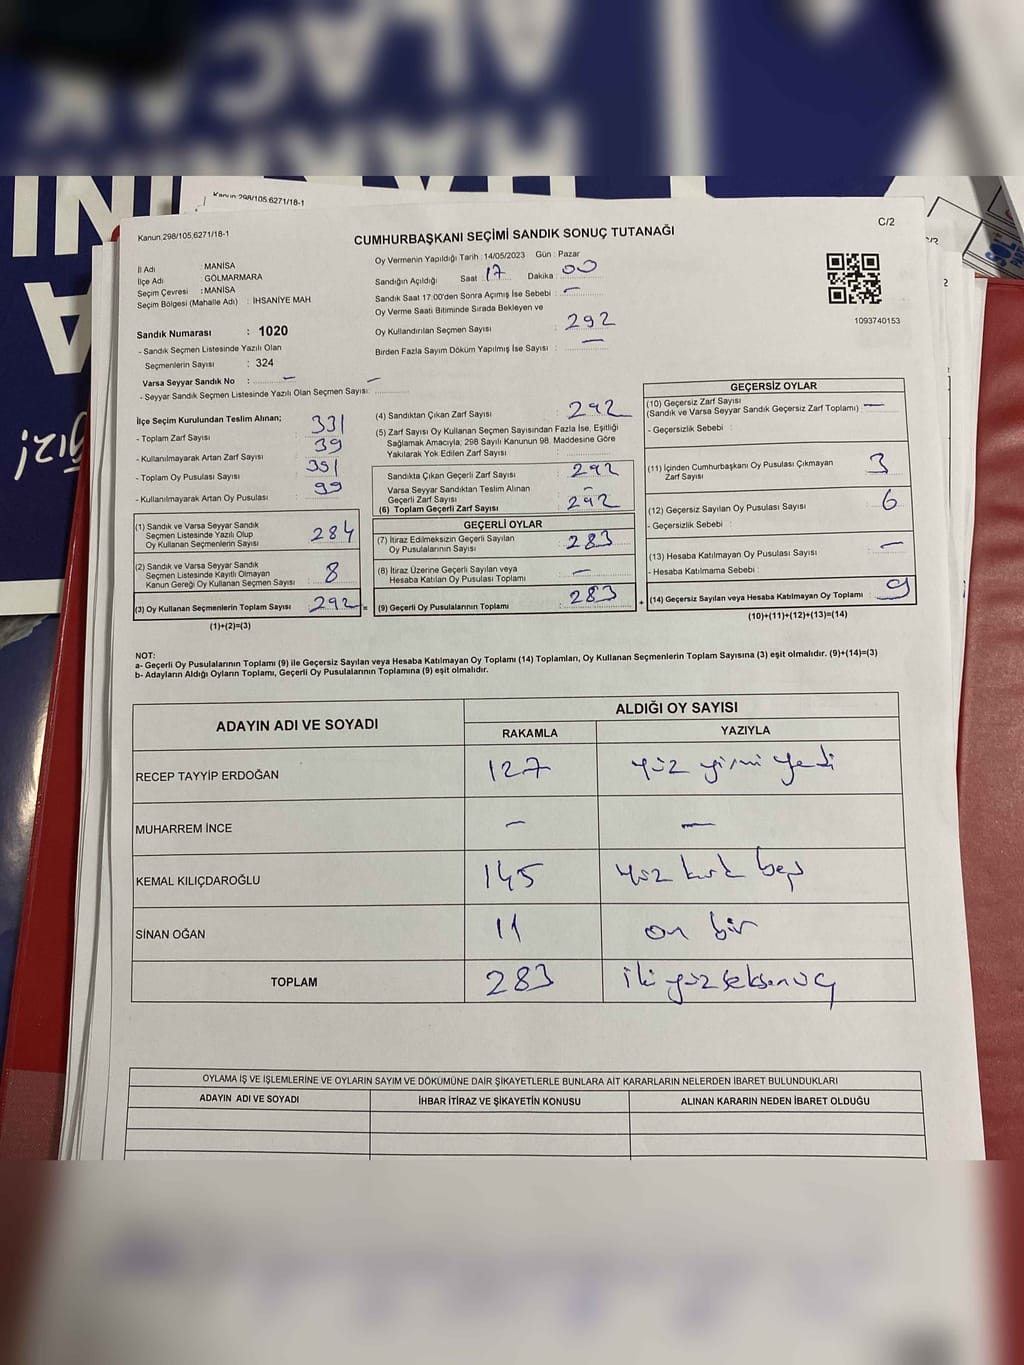 Kanun:298/105.6271/18-1
Kanun:298/105.6271/18-1
C/2
CUMHURBAŞKANI SEÇİMİ SANDIK SONUÇ TUTANAĞI
İl Adı : MANİSA
İlçe Adı : GÖLMARMARA
Seçim Çevresi : MANİSA
Seçim Bölgesi (Mahalle Adı) : İHSANİYE MAH
Sandık Numarası : 1020
- Sandık Seçmen Listesinde Yazılı Olan
Seçmenlerin Sayısı : 324
Varsa Seyyar Sandık No : —
- Seyyar Sandık Seçmen Listesinde Yazılı Olan Seçmen Sayısı: —
Oy Vermenin Yapıldığı Tarih : 14/05/2023 Gün : Pazar
Sandığın Açıldığı Saat 17 Dakika : 00
Sandık Saat 17:00'den Sonra Açımış İse Sebebi : —
Oy Verme Saati Bitiminde Sırada Bekleyen ve
Oy Kullandırılan Seçmen Sayısı : 292
Birden Fazla Sayım Döküm Yapılmış İse Sayısı : —
1093740153
İlçe Seçim Kurulundan Teslim Alınan;
- Toplam Zarf Sayısı 331
- Kullanılmayarak Artan Zarf Sayısı : 39
- Toplam Oy Pusulası Sayısı : 391
- Kullanılmayarak Artan Oy Pusulası : 99
(1) Sandık ve Varsa Seyyar Sandık
Seçmen Listesinde Yazılı Olup
Oy Kullanan Seçmenlerin Sayısı : 284
(2) Sandık ve Varsa Seyyar Sandık
Seçmen Listesinde Kayıtlı Olmayan
Kanun Gereği Oy Kullanan Seçmen Sayısı : 8
(3) Oy Kullanan Seçmenlerin Toplam Sayısı : 292 =
(1)+(2)=(3)
(4) Sandıktan Çıkan Zarf Sayısı : 292
(5) Zarf Sayısı Oy Kullanan Seçmen Sayısından Fazla İse, Eşitliği
Sağlamak Amacıyla; 298 Sayılı Kanunun 98. Maddesine Göre
Yakılarak Yok Edilen Zarf Sayısı :
Sandıkta Çıkan Geçerli Zarf Sayısı : 292
Varsa Seyyar Sandıktan Teslim Alınan
Geçerli Zarf Sayısı : —
(6) Toplam Geçerli Zarf Sayısı : 292
GEÇERLİ OYLAR
(7) İtiraz Edilmeksizin Geçerli Sayılan
Oy Pusulalarının Sayısı : 283
(8) İtiraz Üzerine Geçerli Sayılan veya
Hesaba Katılan Oy Pusulası Toplamı : —
(9) Geçerli Oy Pusulalarının Toplamı : 283 +
GEÇERSİZ OYLAR
(10) Geçersiz Zarf Sayısı
(Sandık ve Varsa Seyyar Sandık Geçersiz Zarf Toplamı) : —
- Geçersizlik Sebebi :
(11) İçinden Cumhurbaşkanı Oy Pusulası Çıkmayan
Zarf Sayısı : 3
(12) Geçersiz Sayılan Oy Pusulası Sayısı : 6
- Geçersizlik Sebebi :
(13) Hesaba Katılmayan Oy Pusulası Sayısı : —
- Hesaba Katılmama Sebebi :
(14) Geçersiz Sayılan veya Hesaba Katılmayan Oy Toplamı : 9
(10)+(11)+(12)+(13)=(14)
NOT:
a- Geçerli Oy Pusulalarının Toplamı (9) ile Geçersiz Sayılan veya Hesaba Katılmayan Oy Toplamı (14) Toplamları, Oy Kullanan Seçmenlerin Toplam Sayısına (3) eşit olmalıdır. (9)+(14)=(3)
b- Adayların Aldığı Oyların Toplamı, Geçerli Oy Pusulalarının Toplamına (9) eşit olmalıdır.
ADAYIN ADI VE SOYADI ALDIĞI OY SAYISI
RAKAMLA YAZIYLA
RECEP TAYYİP ERDOĞAN 127 yüz yirmi yedi
MUHARREM İNCE — —
KEMAL KILIÇDAROĞLU 145 yüz kırk beş
SİNAN OĞAN 11 on bir
TOPLAM 283 iki yüz seksen üç
OYLAMA İŞ VE İŞLEMLERİNE VE OYLARIN SAYIM VE DÖKÜMÜNE DAİR ŞİKAYETLERLE BUNLARA AİT KARARLARIN NELERDEN İBARET BULUNDUKLARI
ADAYIN ADI VE SOYADI İHBAR İTİRAZ VE ŞİKAYETİN KONUSU ALINAN KARARIN NEDEN İBARET OLDUĞU